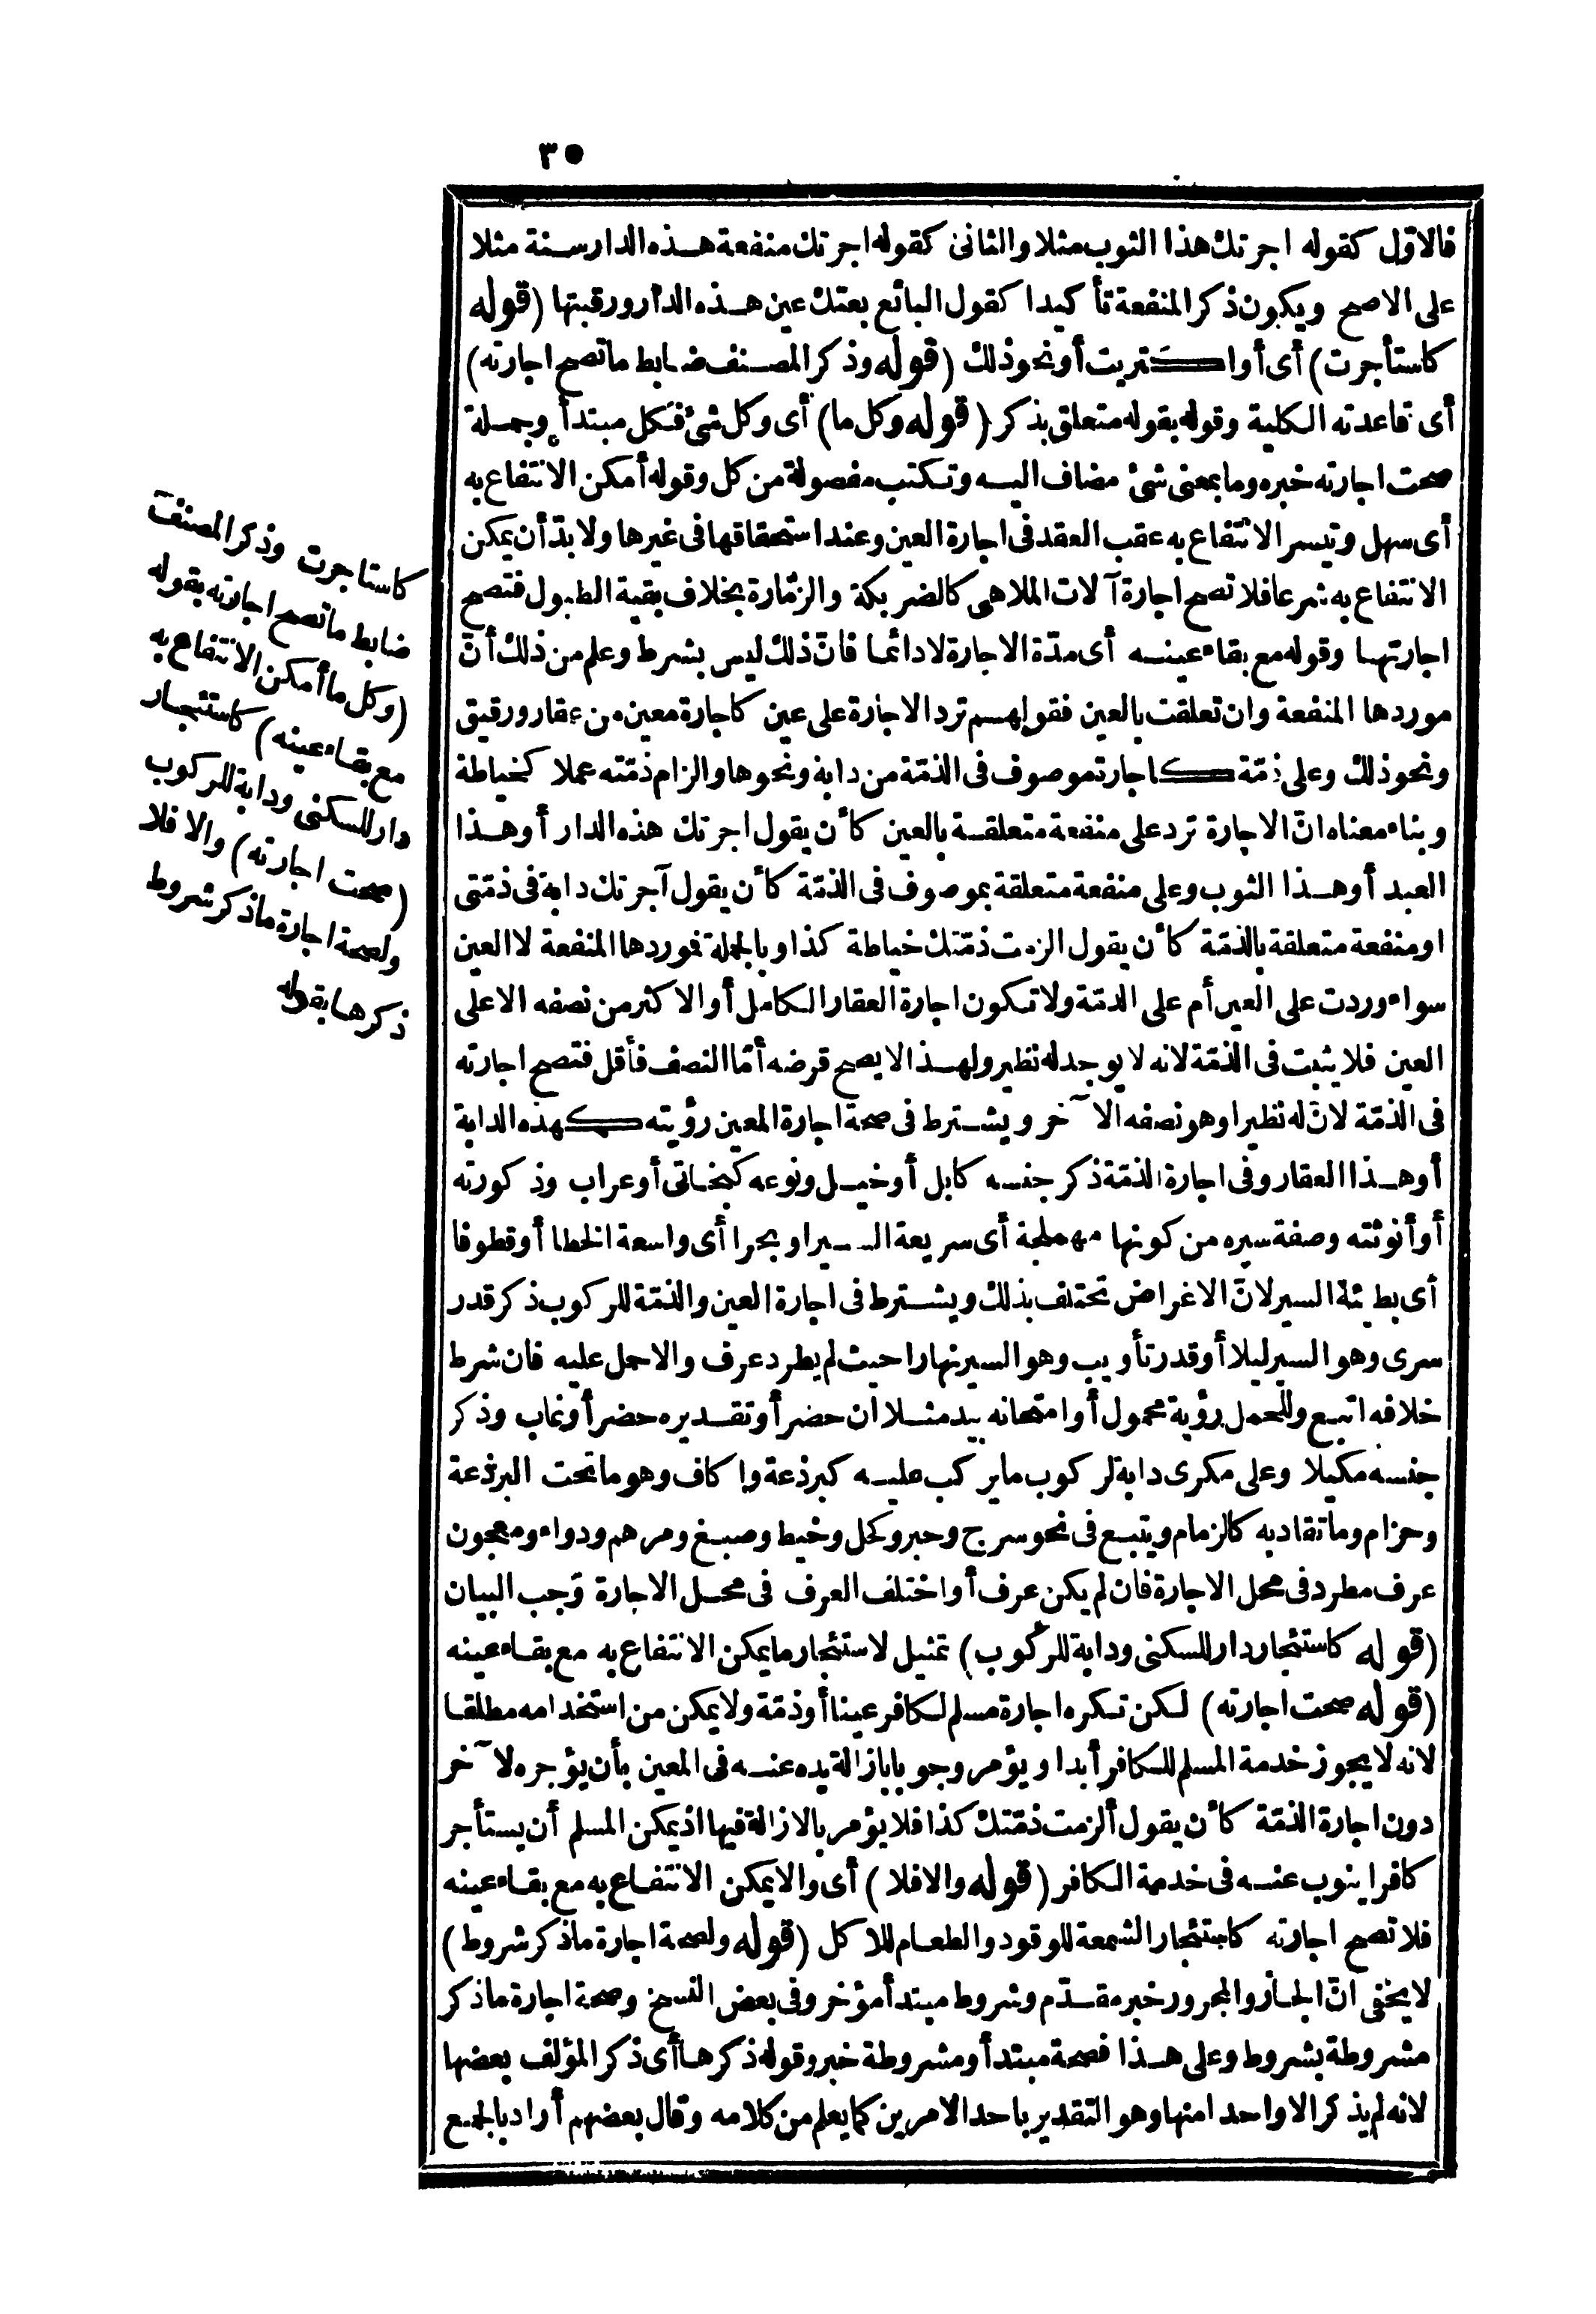 ٣٥
فالاوّل كقوله اجرتك هذا الثوب مثلا والثانى كقوله اجرتك منفعة هذه الدار سنة مثلا
على الاصح ويكون ذكر المنفعة تأكيدا كقول البائع بعتك عين هذه الدار ورقبتها (قوله
كاستأجرت) أى أواكتريت أو نحو ذلك (قوله وذكر المصنف ضابط ما تصح اجارته)
أى قاعدته الكلية وقوله بقوله متعلق بذكر (قوله وكل ما) أى وكل شئ فكل مبتدأ وجملة
صحت اجارته خبره وما بمعنى شئ مضاف اليه وتكتب مفصولة من كل وقوله أمكن الانتفاع به
أى سهل وتيسر الانتفاع به عقب العقد فى اجارة العين وعند استحقاقها فى غيرها ولا بدّ أن يمكن
الانتفاع به شرعا فلا تصح اجارة آلات الملاهى كالضربكة والزمّارة بخلاف بقية الطبول فتصح
اجارتها وقوله مع بقاء عينه أى مدّة الاجارة لا دائما فانّ ذلك ليس بشرط وعلم من ذلك أنّ
موردها المنفعة وان تعلقت بالعين فقولهم ترد الاجارة على عين كاجارة معين من عقار ورقيق
ونحو ذلك وعلى ذمّة كاجارة موصوف فى الذمّة من دابة ونحوها والزام ذمّته عملا كخياطة
وبناء معناه انّ الاجارة ترد على منفعة متعلقة بالعين كأن يقول اجرتك هذه الدار أو هذا
العبد أو هذا الثوب وعلى منفعة متعلقة بموصوف فى الذمّة كأن يقول آجرتك دابة فى ذمّتى
او منفعة متعلقة بالذمّة كأن يقول الزمت ذمّتك خياطة كذا وبالجملة فموردها المنفعة لا العين
سواء وردت على العين أم على الذمّة ولا تكون اجارة العقار الكامل أو الاكثر من نصفه الا على
العين فلا يثبت فى الذمّة لانه لا يوجد له نظير ولهذا لا يصح قرضه أمّا النصف فأقل فتصح اجارته
فى الذمّة لانّ له نظيرا وهو نصفه الآخر ويشترط فى صحة اجارة المعين رؤيته كهذه الدابة
أو هذا العقار وفى اجارة الذمّة ذكر جنسه كابل أو خيل ونوعه كبخاتى أو عراب وذكورته
أو أنوثته وصفة سيره من كونها مهملجة أى سريعة السير او بحرا أى واسعة الخطا أو قطوفا
أى بطيئة السير لانّ الاغراض تختلف بذلك ويشترط فى اجارة العين والذمّة للركوب ذكر قدر
سرى وهو السير ليلا أو قدر تأويب وهو السير نهارا حيث لم يطرد عرف والا حمل عليه فان شرط
خلافه اتبع وللحمل رؤية محمول أو امتحانه بيد مثلا ان حضر أو تقديره حضر أو غاب وذكر
جنسه مكيلا وعلى مكرى دابة لركوب ما يركب عليه كبرذعة واكاف وهو ما تحت البرذعة
وحزام وما تقاد به كالزمام ويتبع فى نحو سرج وحبر وكحل وخيط وصبغ ومرهم ودواء ومعجون
عرف مطرد فى محل الاجارة فان لم يكن عرف أو اختلف العرف فى محل الاجارة وجب البيان
(قوله كاستئجار دار للسكنى ودابة للركوب) تمثيل لاستئجار ما يمكن الانتفاع به مع بقاء عينه
(قوله صحت اجارته) لكن تكره اجارة مسلم لكافر عينا أو ذمّة ولا يمكن من استخدامه مطلقا
لانه لا يجوز خدمة المسلم للكافر أبدا ويؤمر وجوبا بازالة يده عنه فى المعين بأن يؤجره لآخر
دون اجارة الذمّة كأن يقول ألزمت ذمّتك كذا فلا يؤمر بالازالة فيها اذ يمكن المسلم أن يستأجر
كافرا ينوب عنه فى خدمة الكافر (قوله والا فلا) أى والا يمكن الانتفاع به مع بقاء عينه
فلا تصح اجارته كاستئجار الشمعة للوقود والطعام للاكل (قوله ولصحة اجارة ما ذكر شروط)
لا يخفى انّ الجارّ والمجرور خبر مقدّم وشروط مبتدأ مؤخر وفى بعض النسخ وصحة اجارة ما ذكر
مشروطة بشروط وعلى هذا فصحة مبتدأ ومشروطة خبر وقوله ذكرها أى ذكر المؤلف بعضها
لانه لم يذكر الا واحدا منها وهو التقدير باحد الامرين كما يعلم من كلامه وقال بعضهم أراد بالجمع
كاستاجرت وذكر المصنف
ضابط ما تصح اجارته بقوله
(وكل ما أمكن الانتفاع به
مع بقاء عينه) كاستئجار
دار للسكنى ودابة للركوب
(صحت اجارته) والا فلا
ولصحة اجارة ما ذكر شروط
ذكرها بقوله